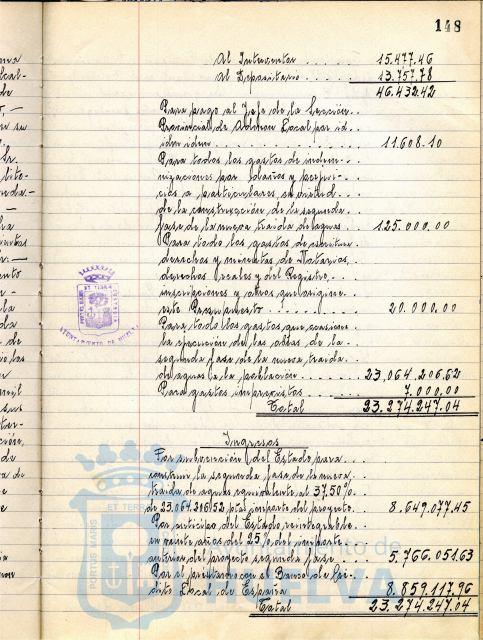 148
Al Interventor . . . . . 15.477.46
Al Depositario . . . . . 13.757.78
46.432.42
Para pago al Jefe de la Sección
Provincial de Admon Local por id
idm idem . . . . . 11.608.10
Para todos los gastos de indem-
nizaciones por daños y perjui-
cios a particulares en virtud
de la construcción de la segunda
fase de la nueva traida de aguas . 125.000.00
Para todo los gastos de escritura
derechos y minutas de Notarios,
derechos reales y del Registro,
inscripciones y otros que origine
este Presupuesto . . . . . 20.000.00
Para todo los gastos que ocasione
la ejecución de las obras de la
segunda fase de la nueva traida
de aguas a la población . . . . . 23,064.206.62
Para gastos imprevistos . . . 7.000.00
Total 23.274.247.04
AYUNTAMIENTO DE HUELVA
Ingresos
Por subvención del Estado para
construir la segunda fase de la nueva
traida de aguas equivalente al 37.50%
de 23.064.216/52 ptas importe del proyecto 8.649.077.45
Por anticipo del Estado reintegrable
en veinte años del 25% del importe
anterior del proyecto segunda fase . . 5.766.051.63
Por el prestamo con el Banco de Cré-
dito Local de España 8.859.117.96
Total 23.274.247.04
PORTUS MARIS ET TERRAE
Ayuntamiento de
HUELVA